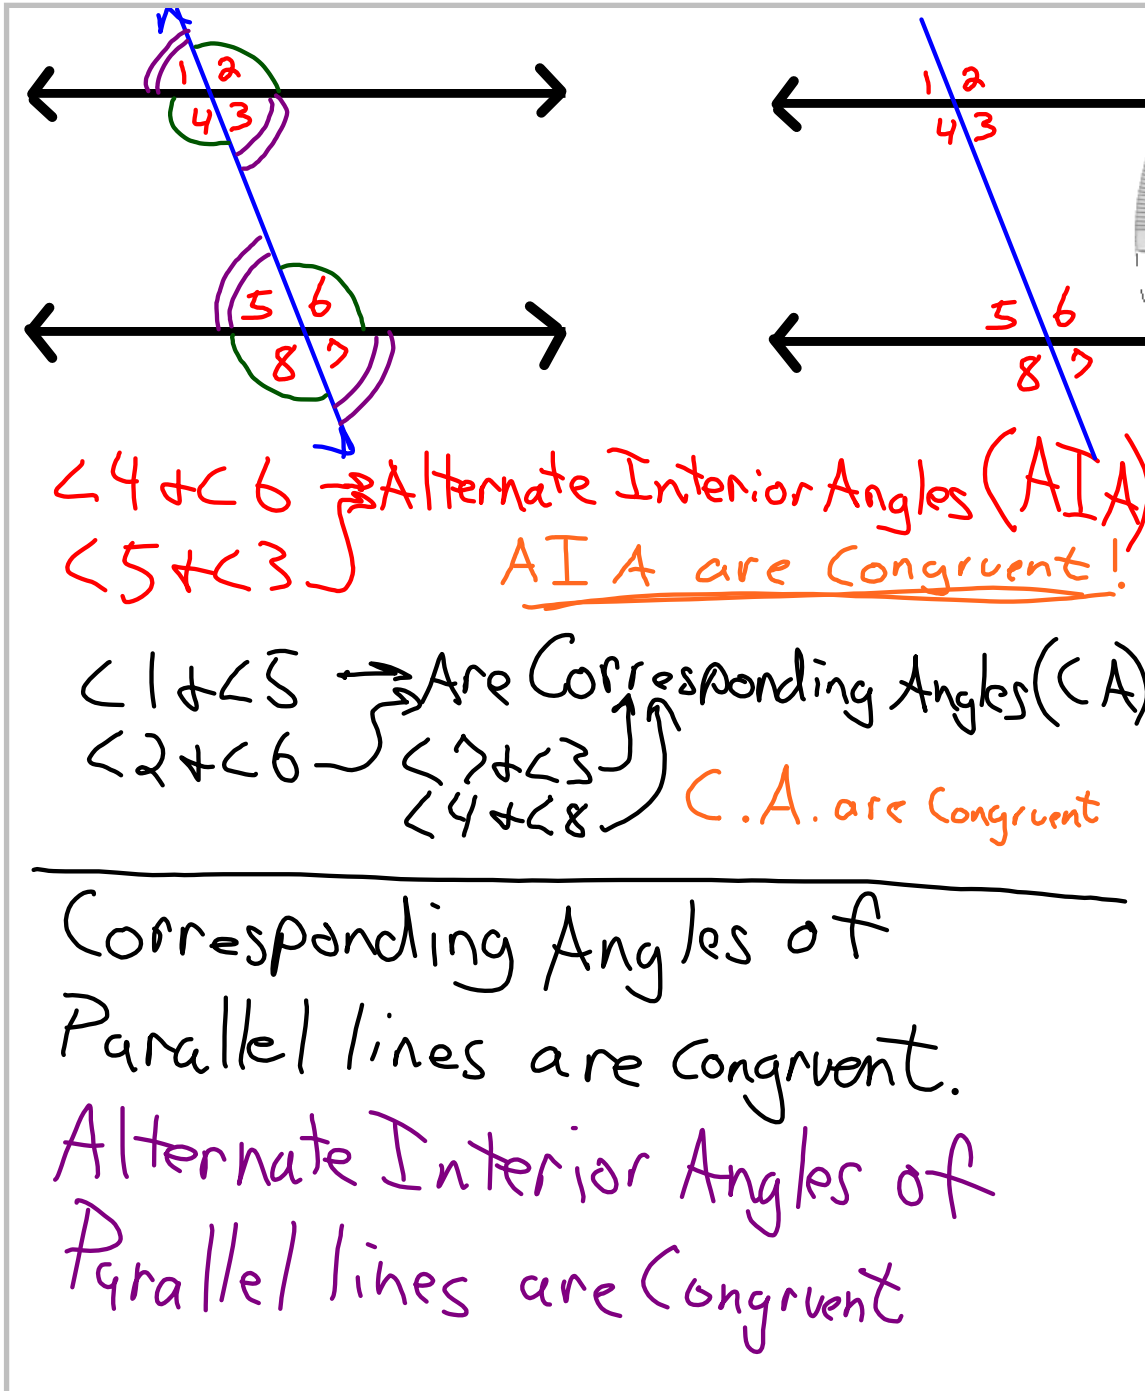 1 2 1 2
4 3 4 3
5 6 5 6
8 7 8 7
<4 + <6 → Alternate Interior Angles (AIA)
<5 + <3
AIA are Congruent!
<1 + <5 → Are Corresponding Angles (CA)
<2 + <6 <7 + <3
<4 + <8 C.A. are Congruent
Corresponding Angles of
Parallel lines are congruent.
Alternate Interior Angles of
Parallel lines are Congruent